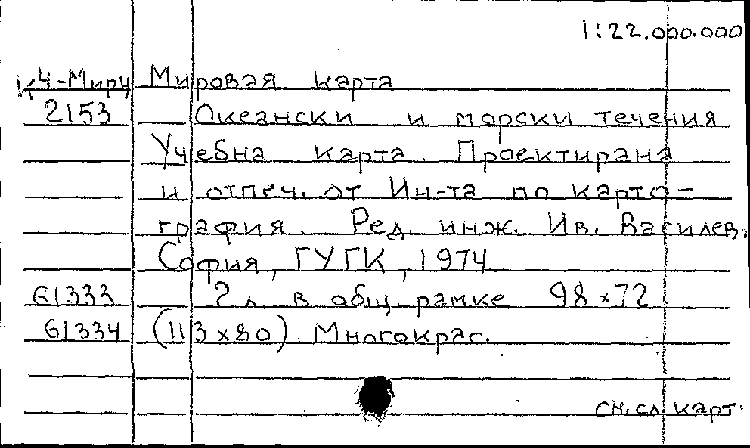 1:22.000.000
К4-Мирч Мировая карта
2153 Океански и морски течения
Учебна карта. Проектирана
и отпеч. от Ин-та по карто-
графия. Ред. инж. Ив. Василев.
София, ГУГК, 1974
61333 2 л. в общ рамке 98х72
61334 (113х80) Многокрас.
сн.сл.карт.